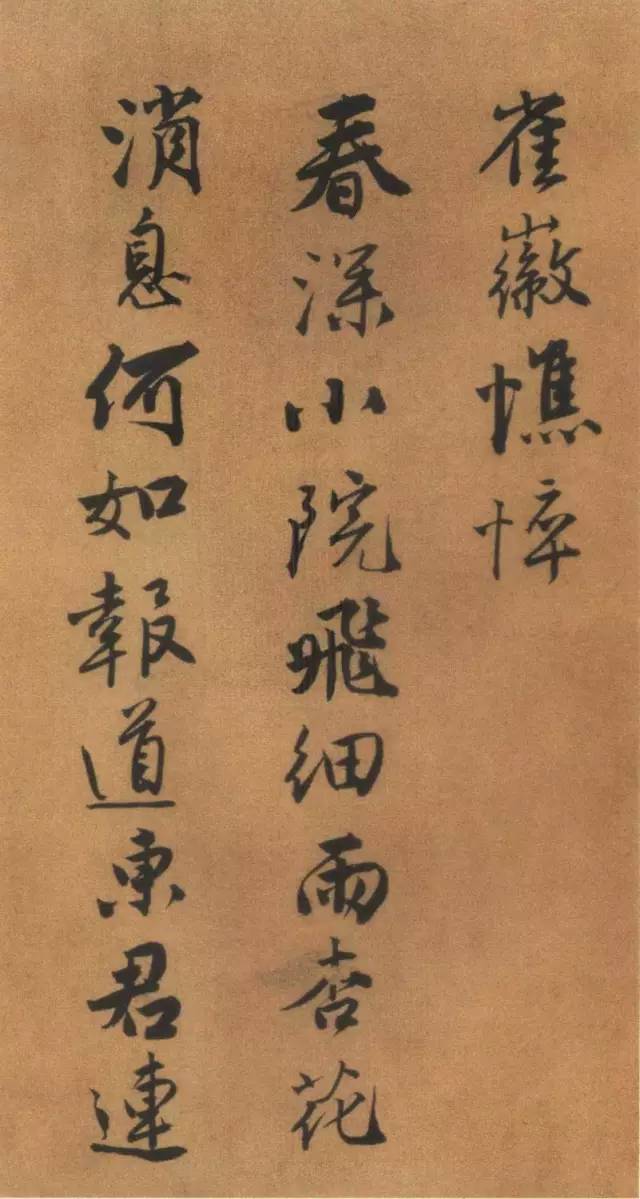 崔徽憔悴
春深小院飛細雨杏花
消息何如報道東君連